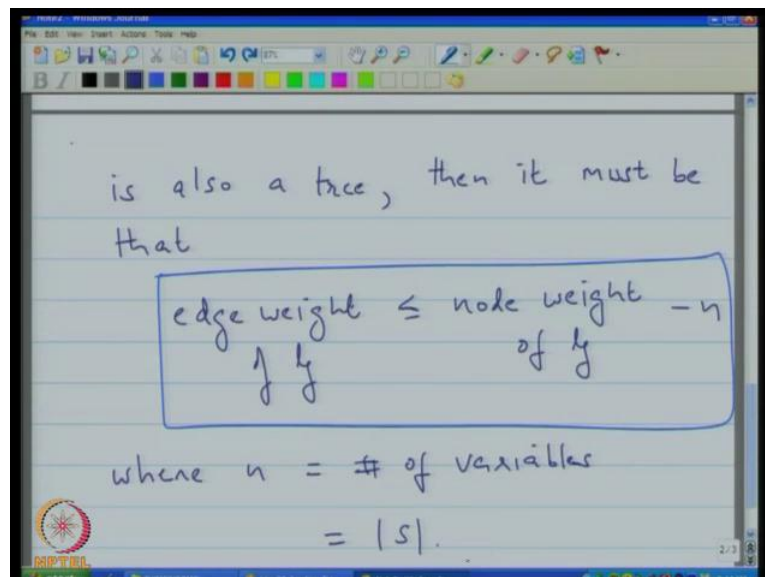 Note2 - Windows Journal
File Edit View Insert Actions Tools Help
87%
B I
is also a tree, then it must be
that
edge weight ≤ node weight - n
of G of G
where n = # of variables
= |S|.
2/3
NPTEL